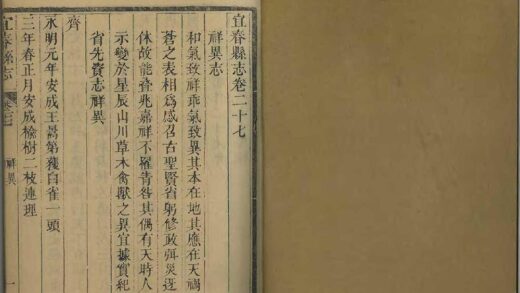 宜春縣志卷二十七
祥異志
和氣致祥乖氣致異其本在地其應在天禍
蒼之表相為感召古聖賢省躬修政弭災迓
休故能叠兆嘉祥不罹眚咎其偶有天時人
示變於星辰山川草木禽獸之異宜據實紀
省先資志祥異
齊
永明元年安成王暠第獲白雀一頭
三年春正月安成榆樹二枝連理
宜春縣志
祥異
一